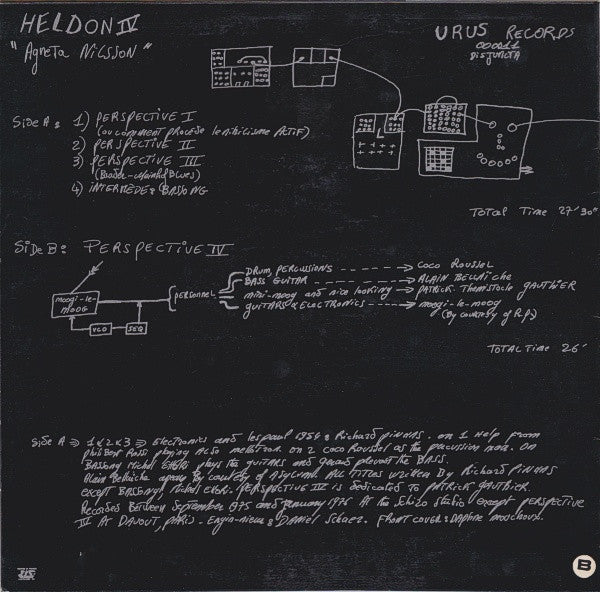 HELDON IV
"Agneta Nilsson"
URUS RECORDS
000011
DISJUNCTA
Side A:
1) PERSPECTIVE I
(ou comment procède le nihilisme Actif)
2) PERSPECTIVE II
3) PERSPECTIVE III
(Baader-Meinhof Blues)
4) INTERMEDE: BASSONG
Total Time 27'30"
Side B: PERSPECTIVE IV
moogi-le-
MOOG
VCO
SEQ
PERSONNEL
DRUM, PERCUSSIONS → COCO ROUSSEL
BASS GUITAR → ALAIN BELLAICHE
mini-moog and nice looking → PATRICK Themistocle GAUTHIER
GUITARS & ELECTRONICS → moogi-le-moog
(By courtesy of R.P.)
TOTAL Time 26'
Side A ⇒ 1&2&3 ⇒ Electronics and lespaul 1954: Richard PINHAS. on 1 Help from
philibert Rossi playing Also mellotron. on 2 Coco Roussel as the percussion man. on
BASSONG Michel EMER plays the guitars and gerard prevost the BASS.
Alain Bellaiche appear by courtesy of ASYLUM. All titles written By Richard PINHAS
except BASSONG, Michel EMER. PERSPECTIVE III is dedicated to PATRICK GAUTHIER.
Recorded Between September 1975 and January 1976 At the Schizo studio except perspective
IV AT DAVOUT, PARIS - Engin-nieur: Daniel
FRONT COVER: Daphné
B